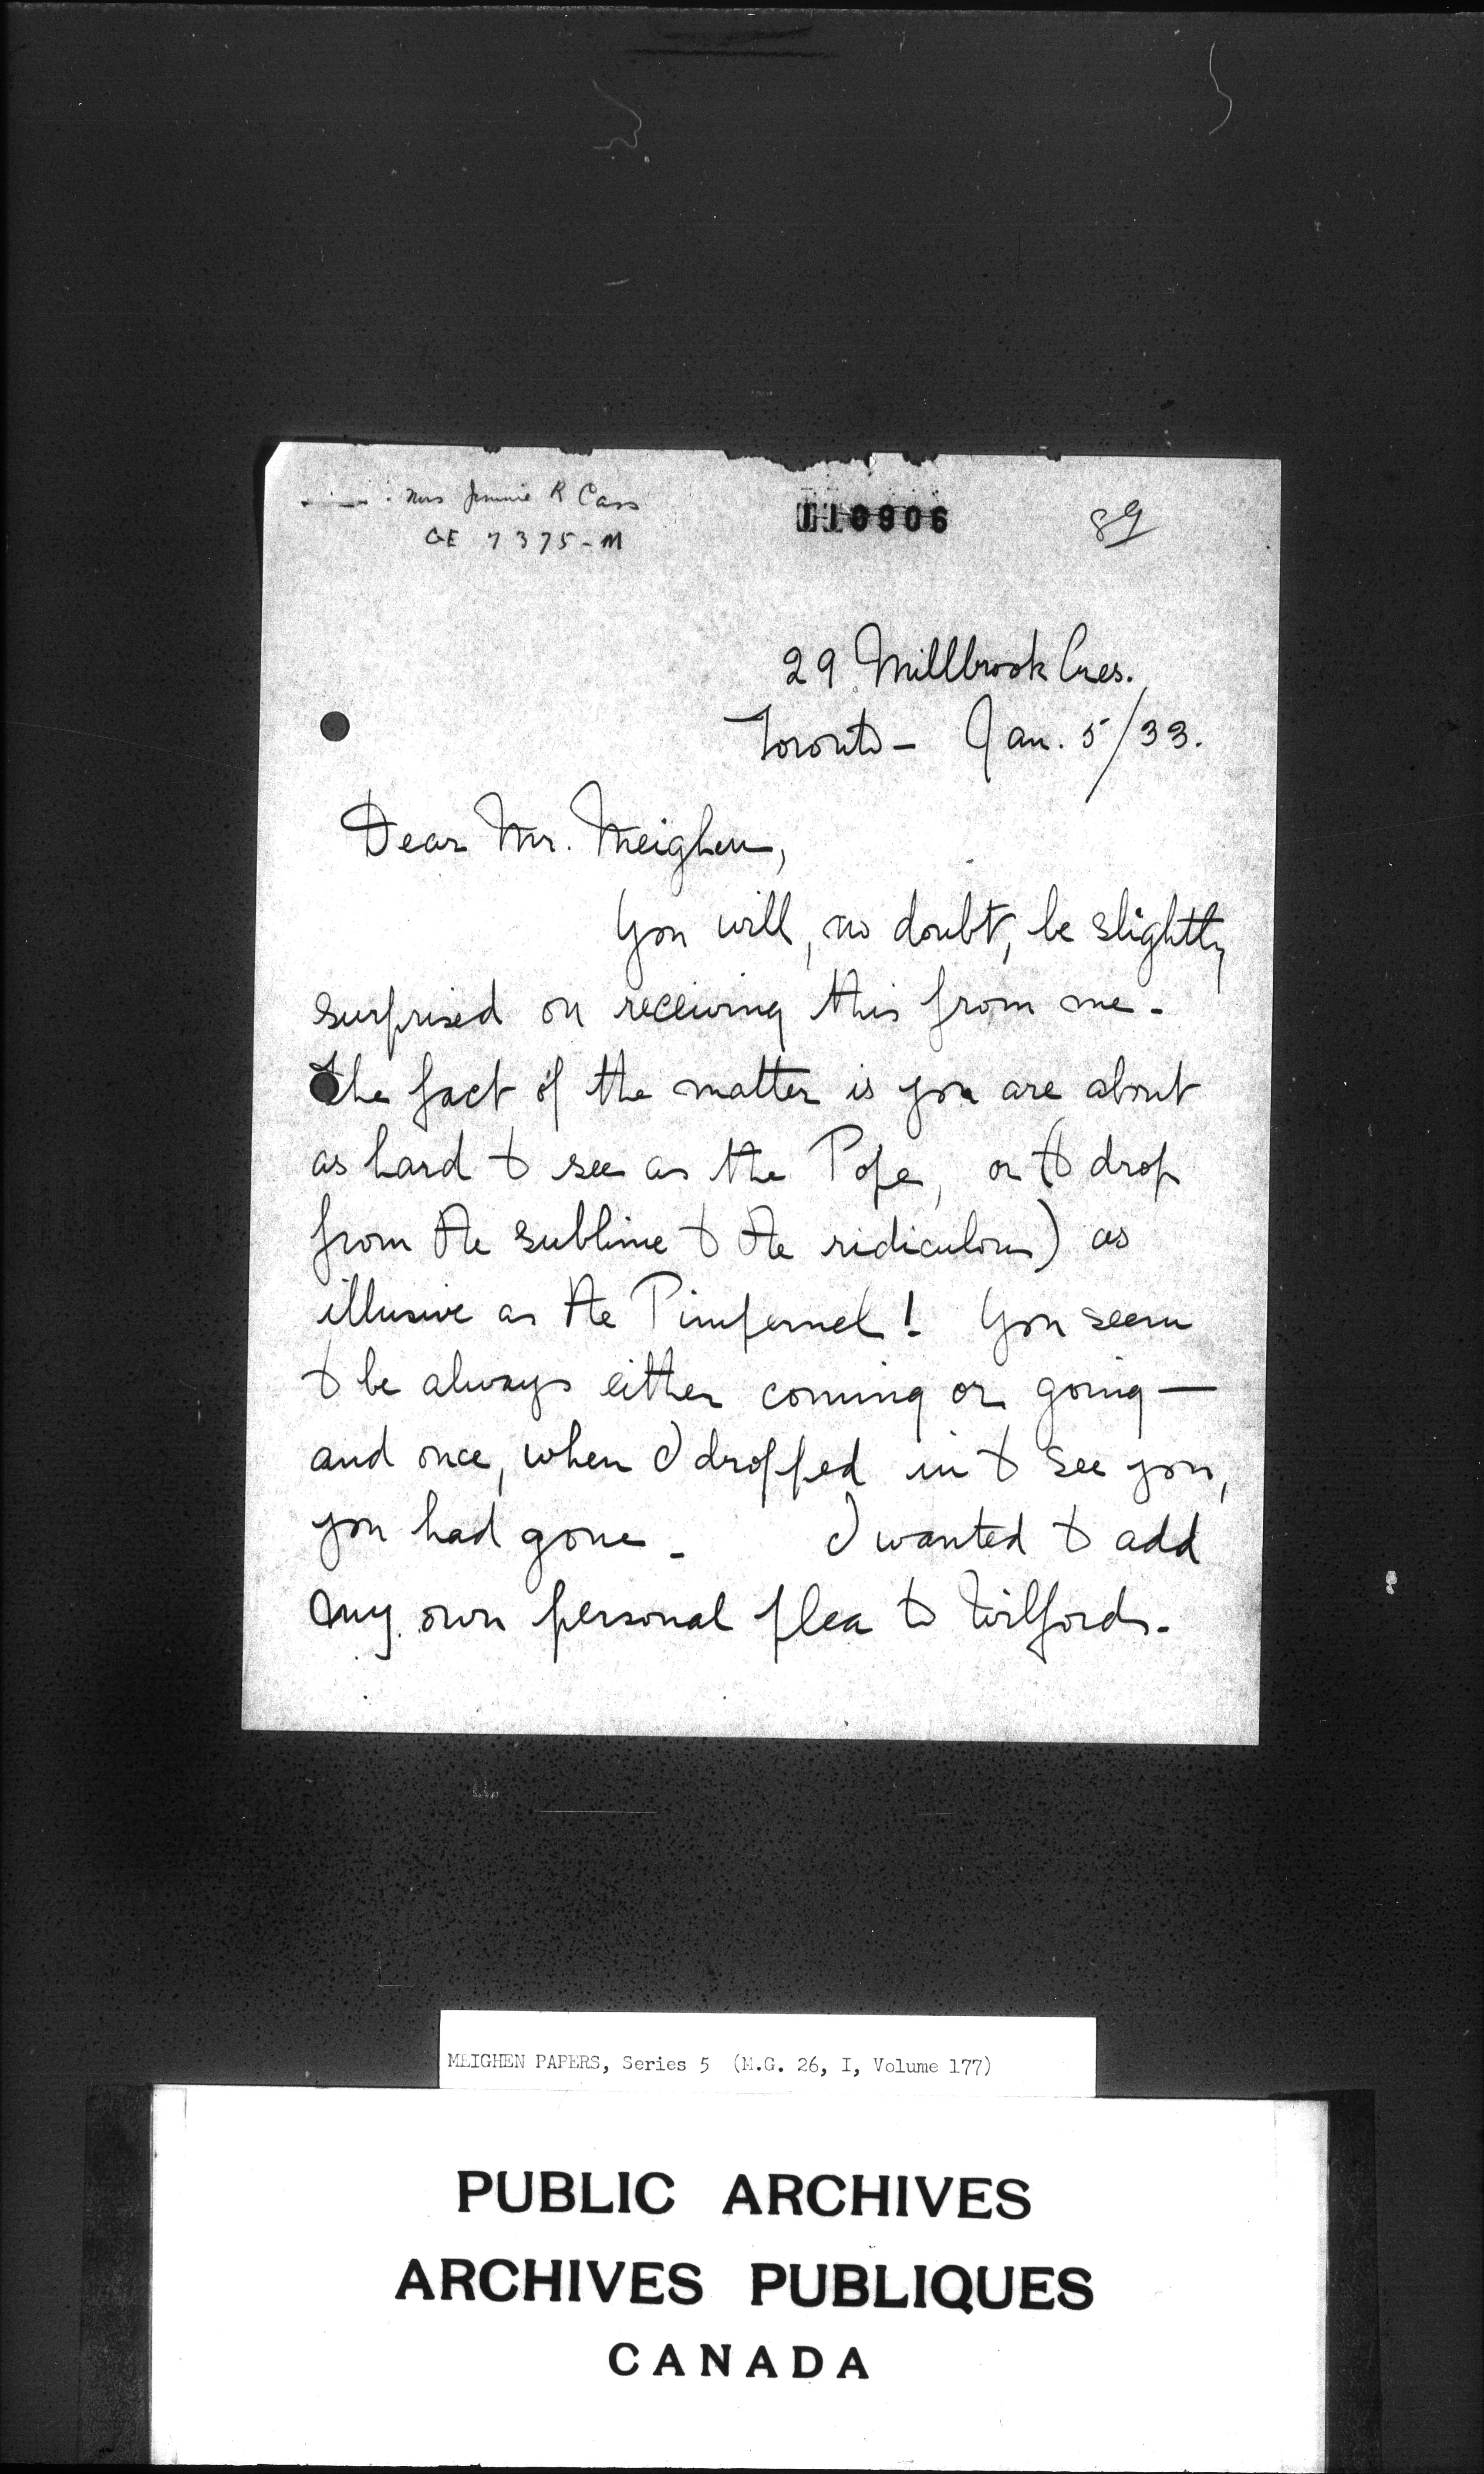 Mrs Jennie R Cass
GE 7375-M
110906
89
29 Millbrook Cres.
Toronto - Jan. 5/33.
Dear Mr. Meighen,
You will, no doubt, be slightly
surprised on receiving this from me -
The fact of the matter is you are about
as hard to see as the Pope, or (to drop
from the sublime to the ridiculous) as
illusive as the Pimpernel! You seem
to be always either coming or going —
and once, when I dropped in to see you,
you had gone - I wanted to add
my own personal plea to Wilfords.
MEIGHEN PAPERS, Series 5 (M.G. 26, I, Volume 177)
PUBLIC ARCHIVES
ARCHIVES PUBLIQUES
CANADA